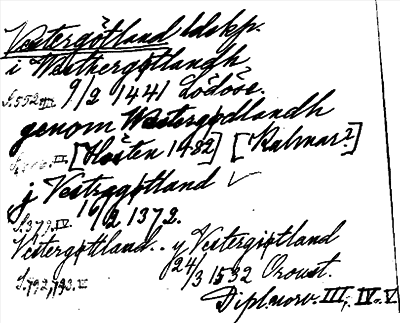 Vestergötland ldskp.
i Westhergøtlandh
S. 552 III. 9/2 1441 Lödöse.
genom Westergodlandh
III. [Hösten 1482] [Kalmar?]
j Vestregøtland ✓
S. 379. IV. 16/2 1372.
Vestergøttland. y Vestergiøtland
S. 792, 793. 24/3 1532 Oroust.
Dipl. norv. III, IV. V